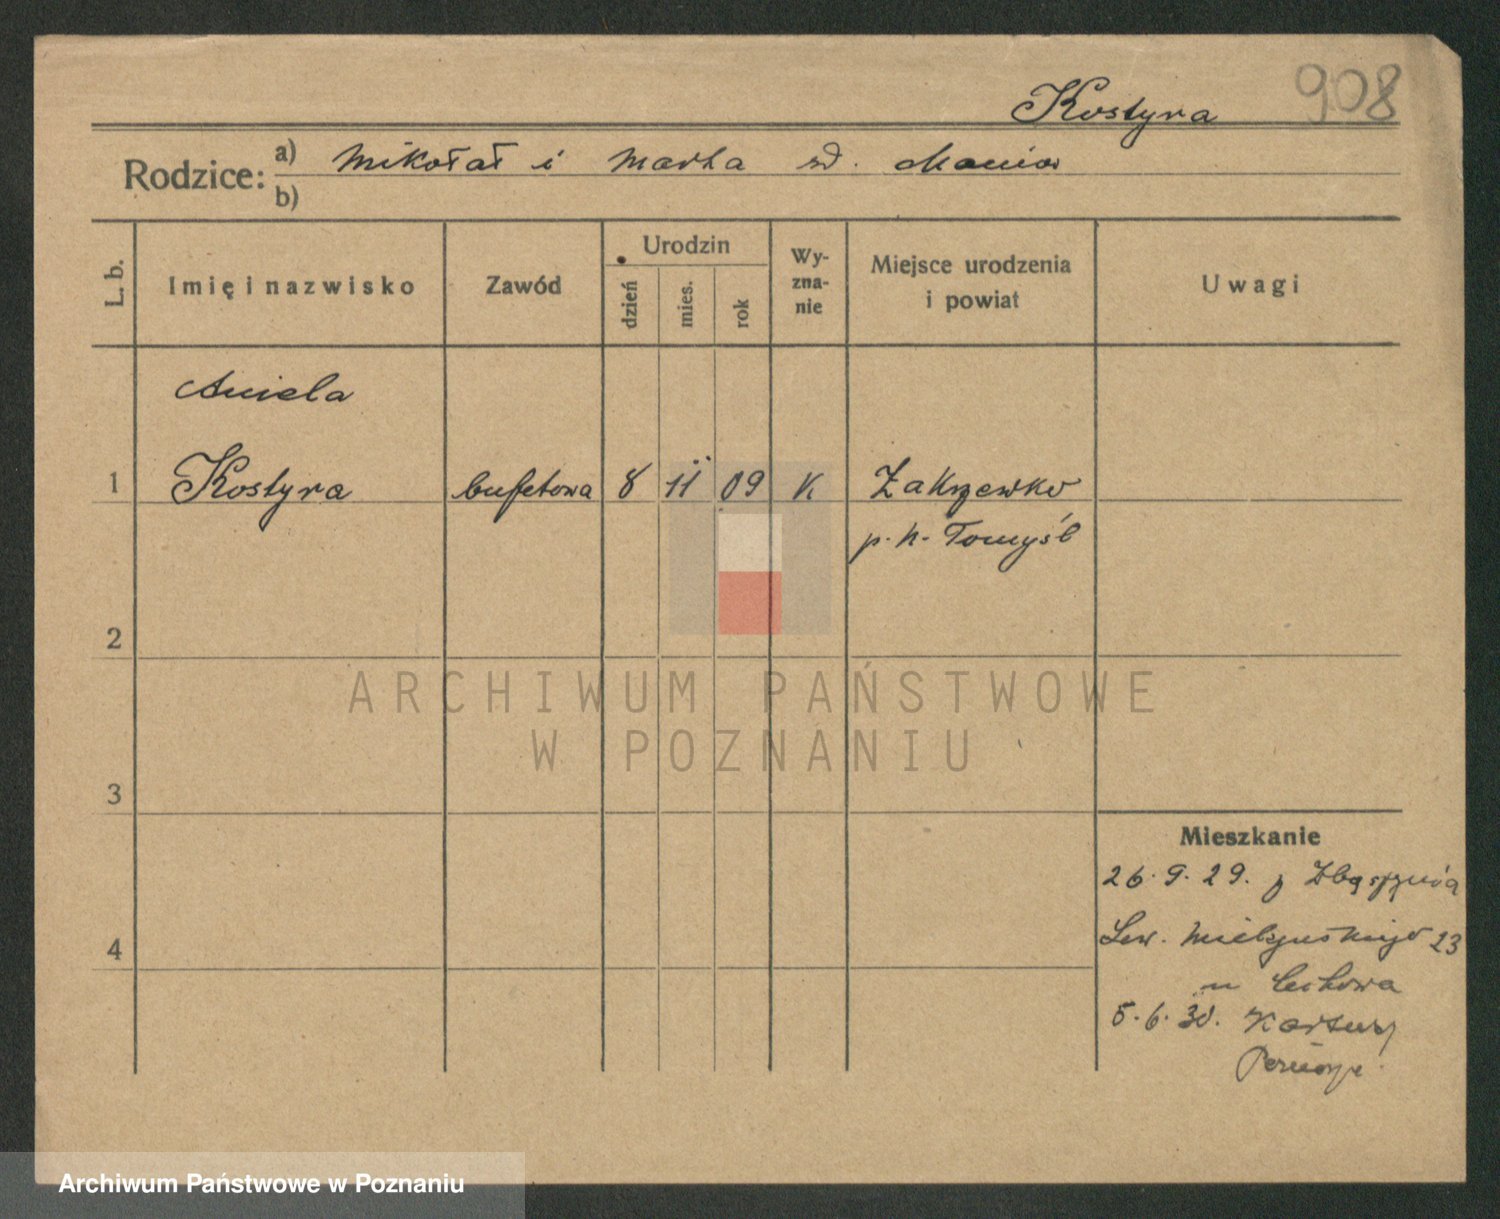 908
Kostyra
Rodzice: a) Mikołaj i Marta
b)
L. b.
Imię i nazwisko
Zawód
Urodzin
dzień
mies.
rok
Wy-
zna-
nie
Miejsce urodzenia
i powiat
Uwagi
Aniela
1 Kostyra bufetowa 8 11 09 K Zakrzewko
p. N. Tomyśl
2
3
4
Mieszkanie
26. 9. 29. z Zbąszynia
23
u
5. 6. 30. Kartuzy
Pomorze
ARCHIWUM PAŃSTWOWE
W POZNANIU
Archiwum Państwowe w Poznaniu